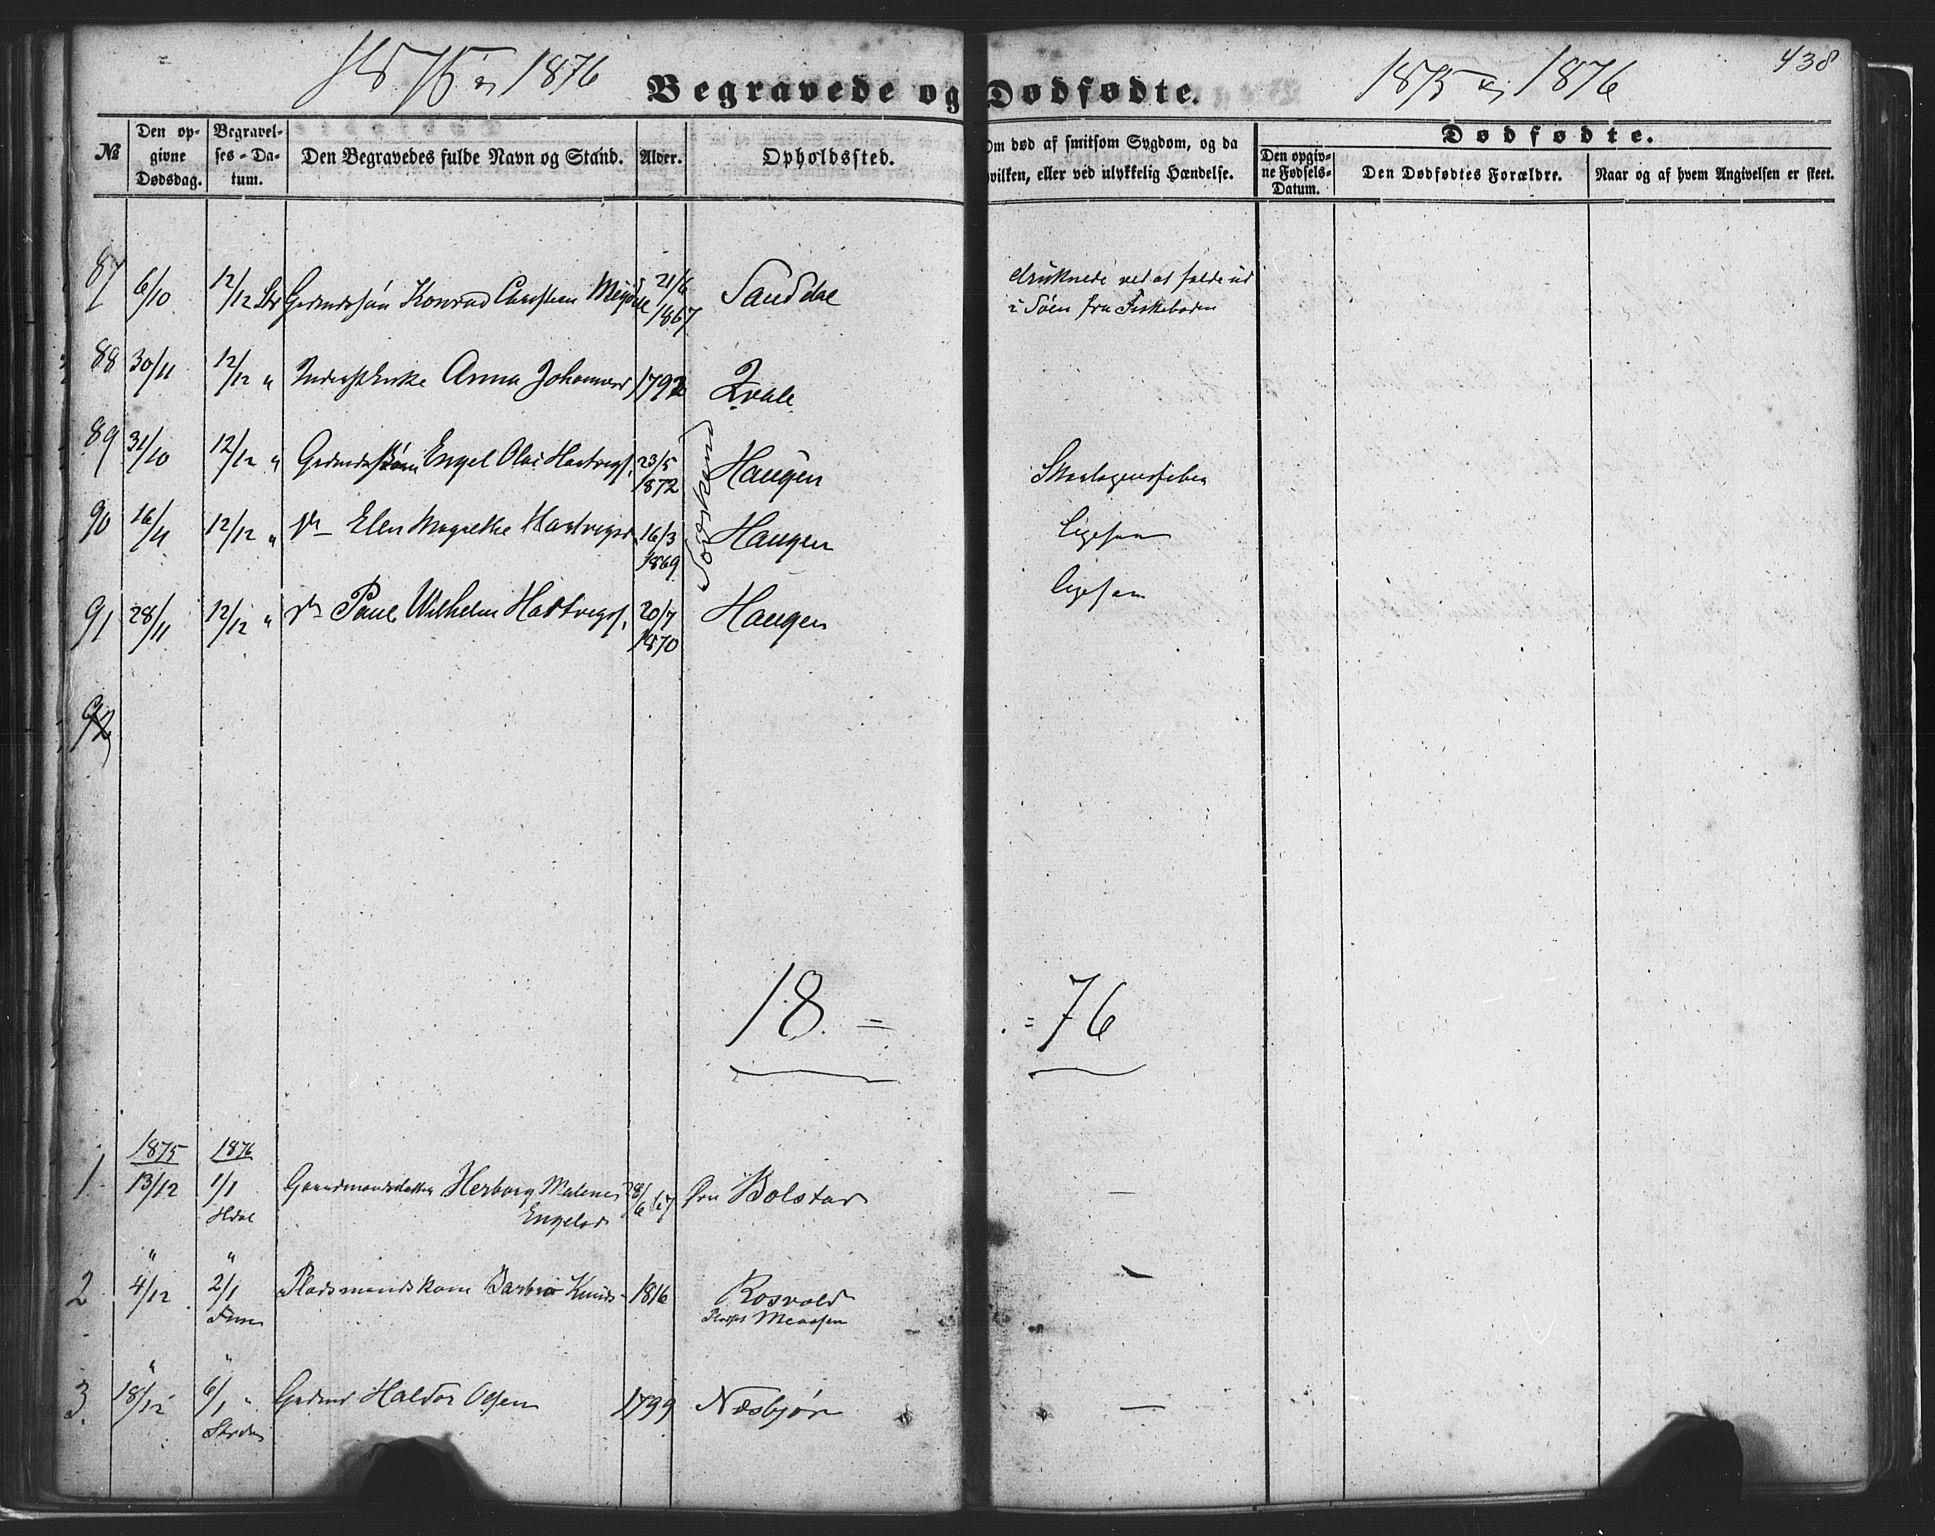 1875 og 1876
Begravede og Dødfødte.
1875 og 1876
438
No
Den op-
givne
Dødsdag.
Begravel-
ses-Da-
tum.
Den Begravedes fulde Navn og Stand.
Alder.
Opholdssted.
Om død af smitsom Sygdom, og da
hvilken, eller ved ulykkelig Hændelse.
Dødfødte.
Den opgiv-
ne Fødsels-
Datum.
Den Dødfødtes Forældre.
Naar og af hvem Angivelsen er skeet.
87 6/10 12/12 Konrad Christian 21/6 1867 Sanddal druknede ved at falde ud
i Søen fra Fiskebaaden
88 30/11 12/12 " Anna Johannesd 1792 Qvale
89 31/10 12/12 " Engel Olai Hartvigs. 23/5 1872 Haugen Skarlagensfeber
90 16/11 12/12 " Elen Magrethe Hartvigsd 16/3 1869 Haugen ligesaa
91 28/11 12/12 " Paul Wilhelm Hartvigs. 20/7 1870 Haugen ligesaa
92
18. = . = 76
1875 1876
1 13/12 1/1 Gaardmandsdatter Herborg Malene 28/6 67 Bolstad —
Engelsd
" "
2 4/12 2/1 Pladsmandskone Barbro Knuds- 1816 Rosvold —
" "
3. 18/12 6/1 Grdmd Haldor Olsen 1799 Næsbjør —